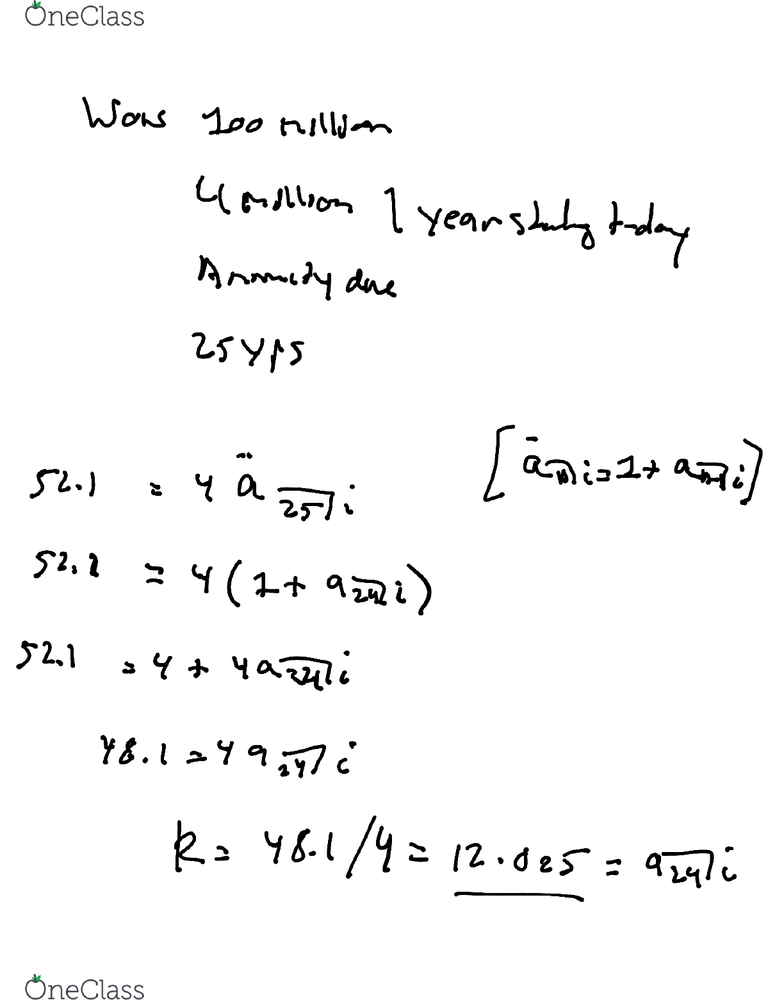 OneClass
Wons 100 million
4 million / year starting today
Annuity due
25 yrs
52.1 = 4 ä25⌉i [än⌉i = 1 + an-1⌉i]
52.1 = 4(1 + a24⌉i)
52.1 = 4 + 4a24⌉i
48.1 = 4a24⌉i
k = 48.1/4 = 12.025 = a24⌉i
OneClass